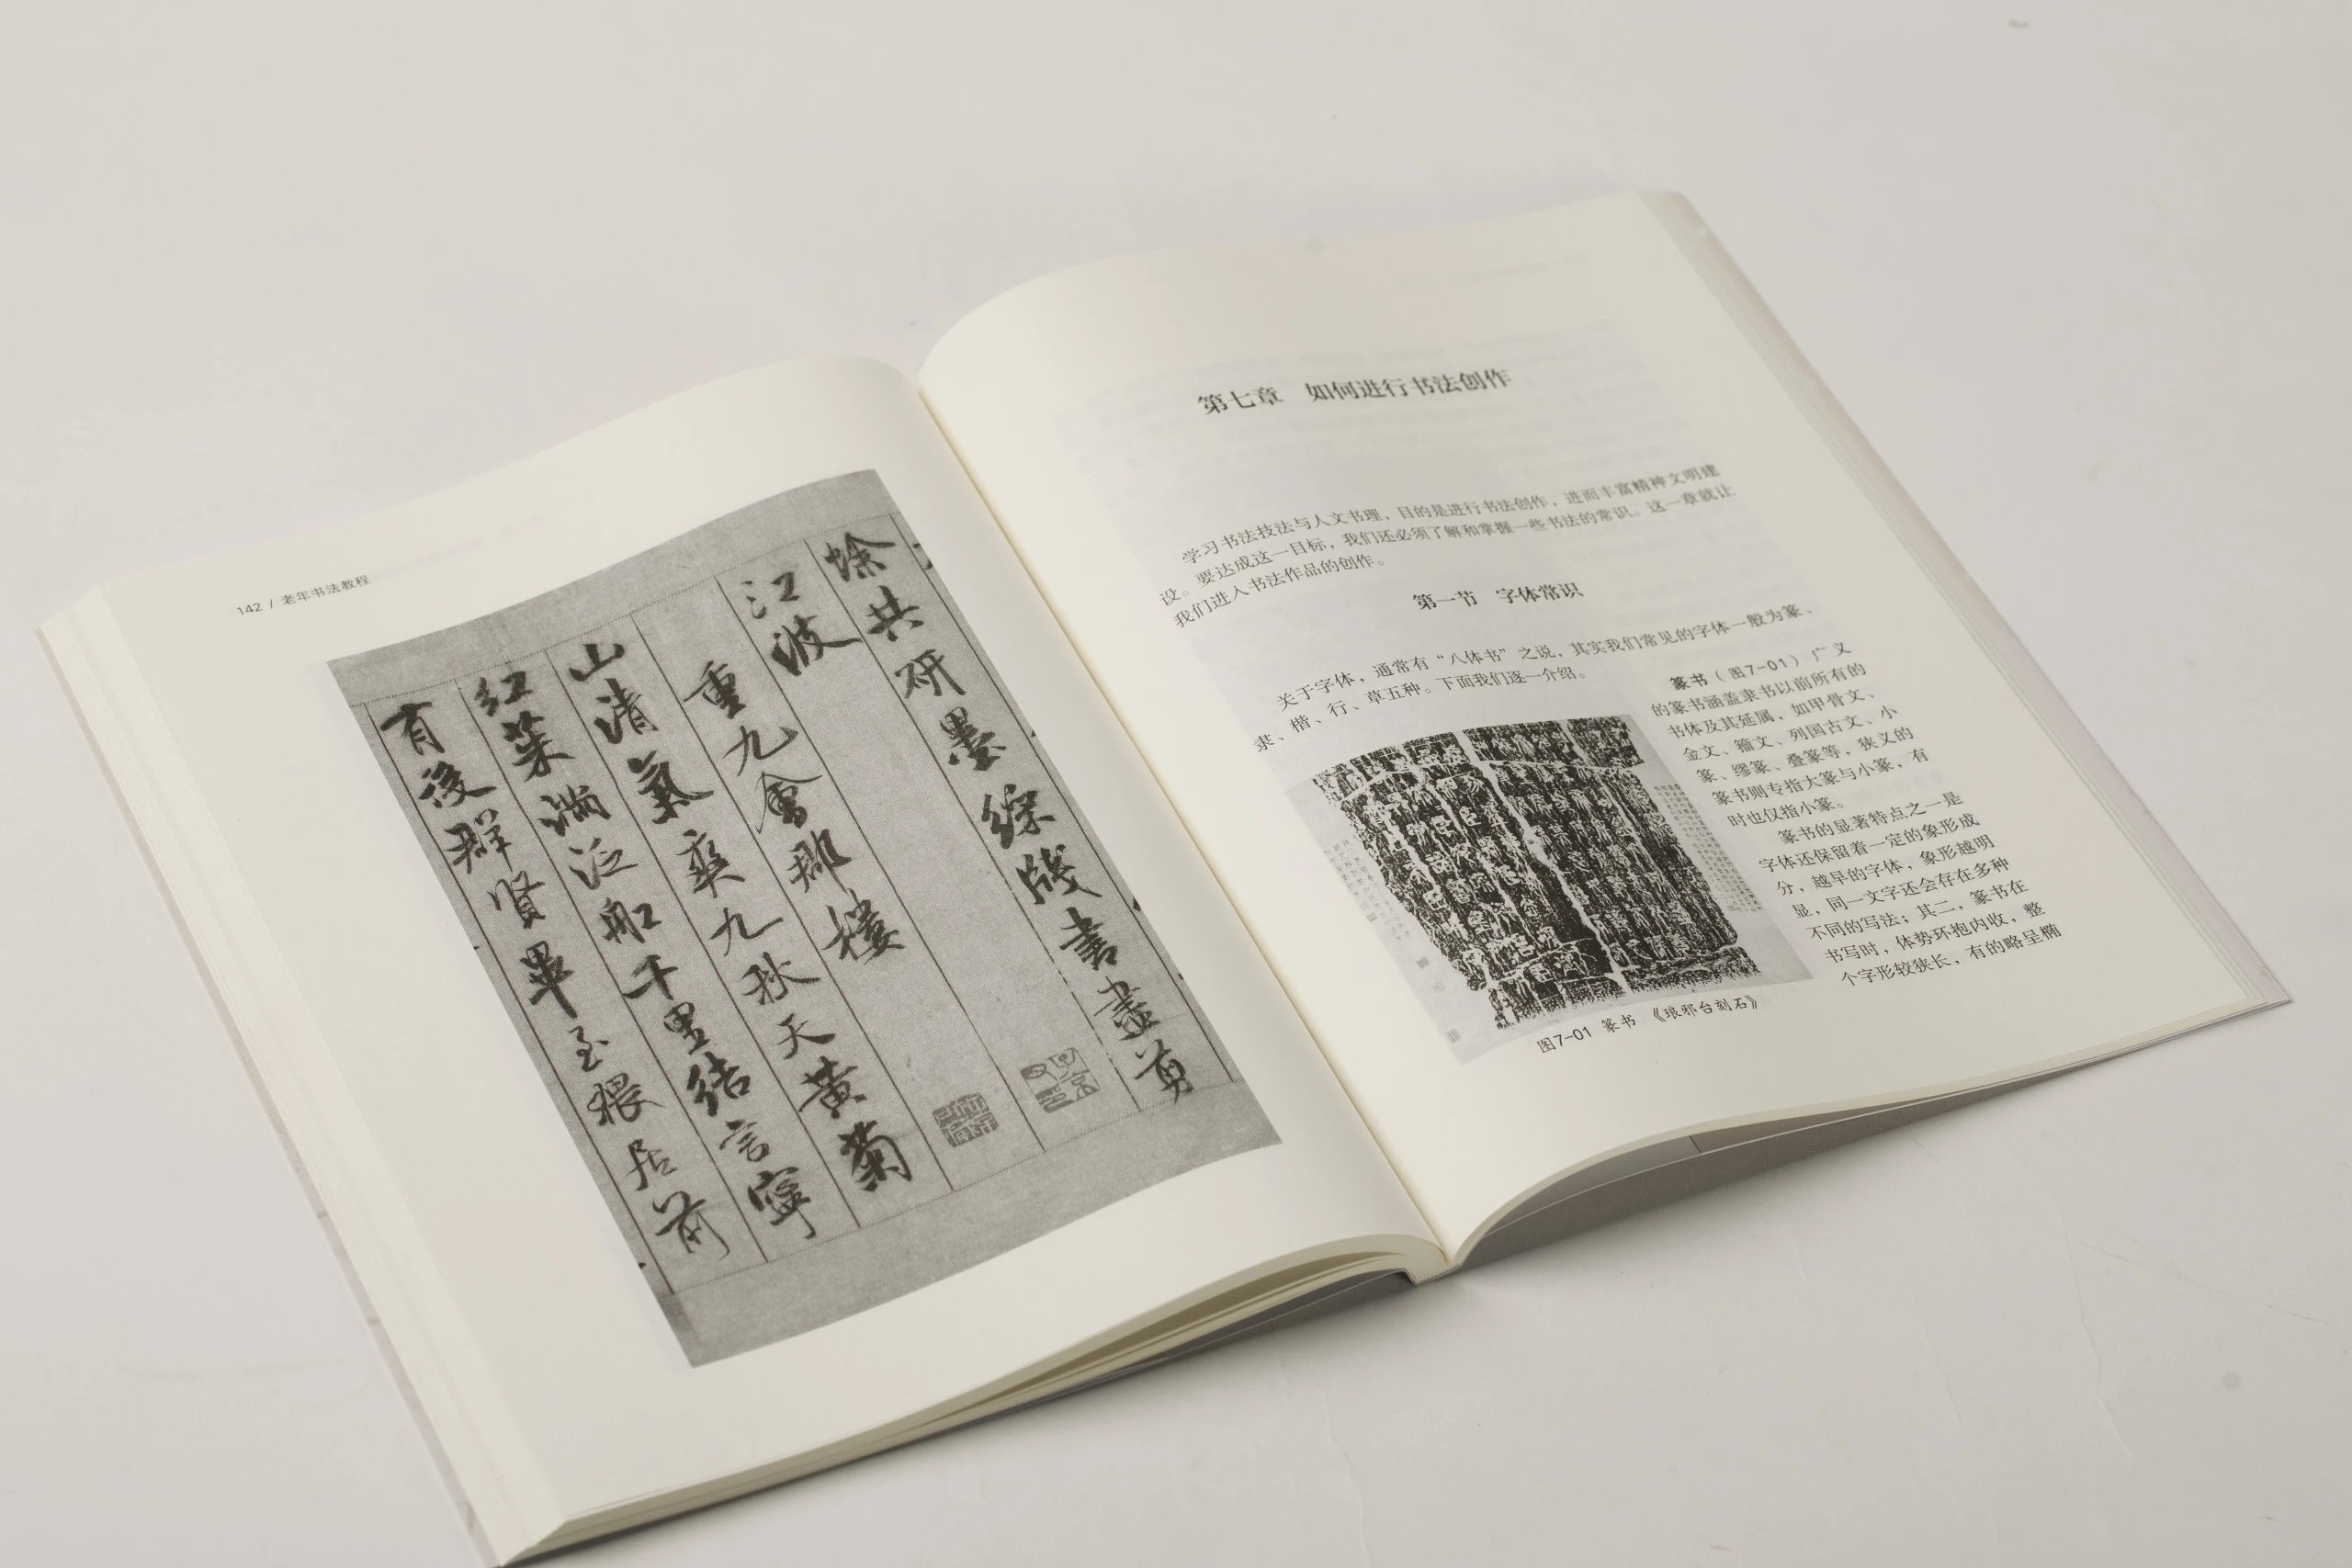 142 / 老年书法教程
蜍共研墨綵牋書盡剪
江波
重九會郡樓
山清氣爽九秋天黃菊
紅茱滿泛船千里結言寧
有後群賢畢至猥居前
第七章 如何进行书法创作
学习书法技法与人文书理，目的是进行书法创作，进而丰富精神文明建
设。要达成这一目标，我们还必须了解和掌握一些书法的常识。这一章就让
我们进入书法作品的创作。
第一节 字体常识
关于字体，通常有“八体书”之说，其实我们常见的字体一般为篆、
隶、楷、行、草五种。下面我们逐一介绍。
篆书（图7-01）广义
的篆书涵盖隶书以前所有的
书体及其延属，如甲骨文、
金文、籀文、列国古文、小
篆、缪篆、叠篆等，狭义的
篆书则专指大篆与小篆，有
时也仅指小篆。
篆书的显著特点之一是
字体还保留着一定的象形成
分，越早的字体，象形越明
显，同一文字还会存在多种
不同的写法；其二，篆书在
书写时，体势环抱内收，整
个字形较狭长，有的略呈椭
图7-01 篆书 《琅邪台刻石》